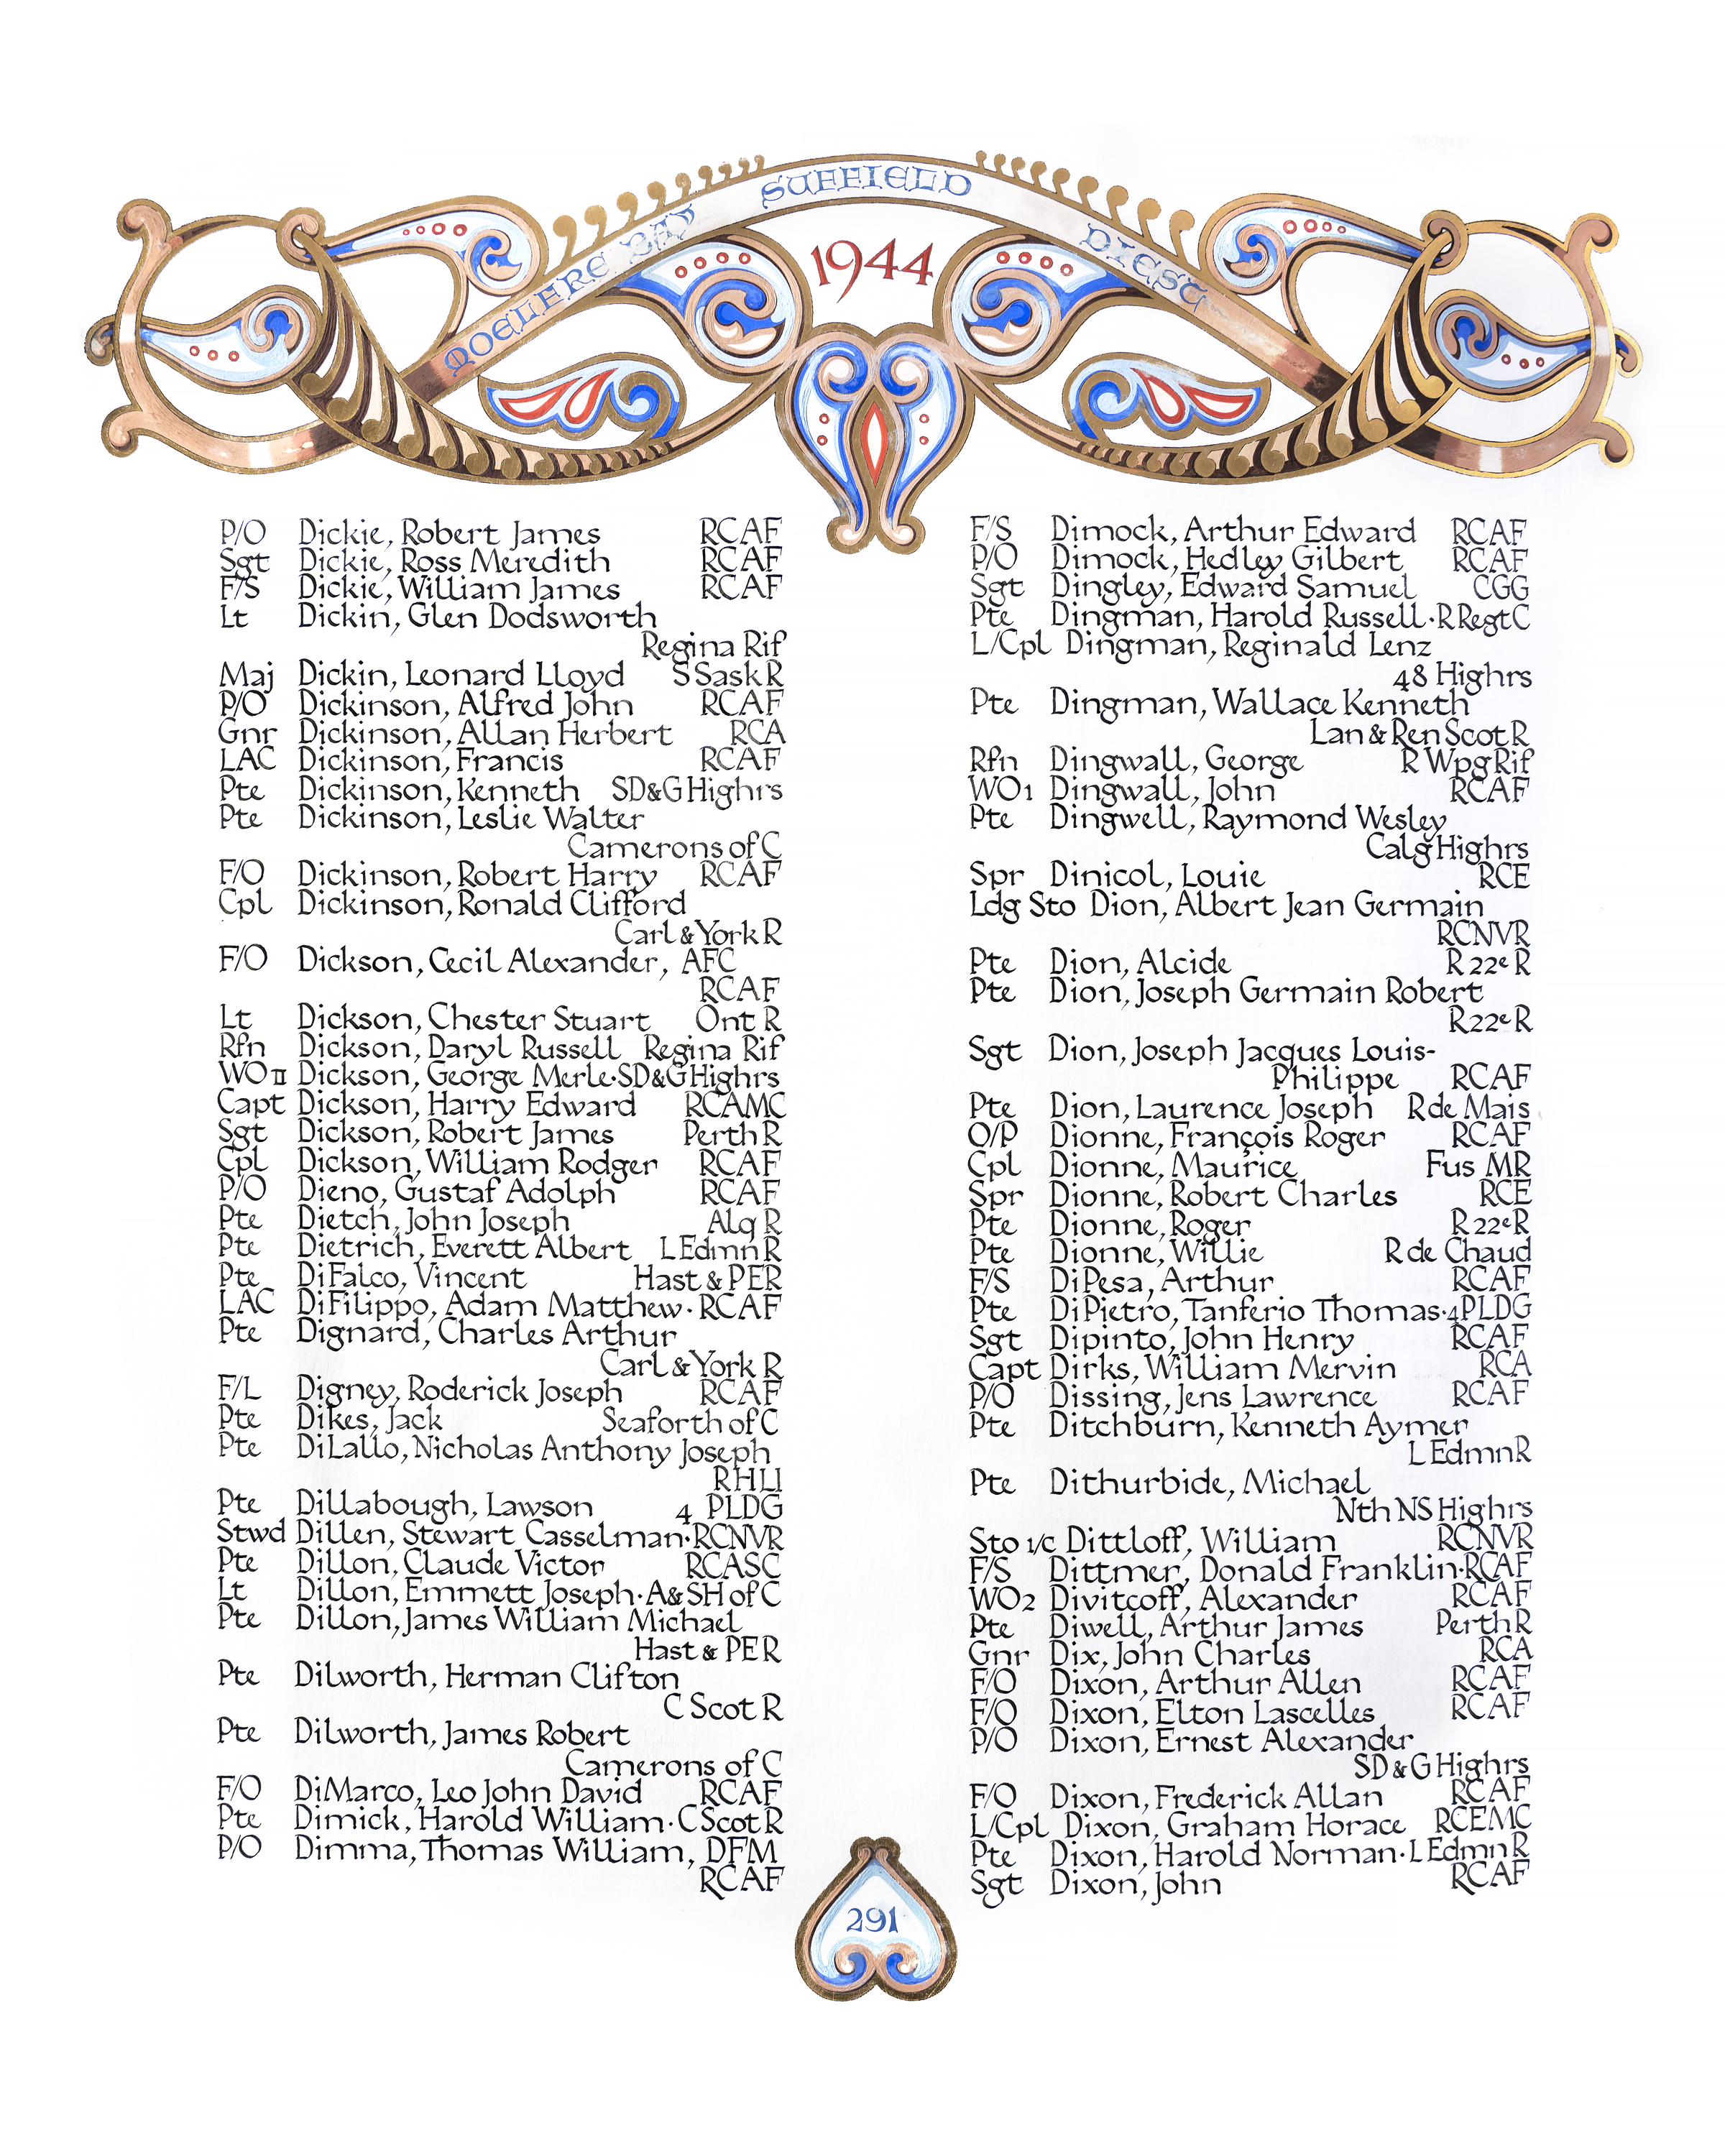 MOELFRE BAY SUFFIELD DIEST
1944
P/O Dickie, Robert James RCAF
Sgt Dickie, Ross Meredith RCAF
F/S Dickie, William James RCAF
Lt Dickin, Glen Dodsworth
Regina Rif
Maj Dickin, Leonard Lloyd S Sask R
P/O Dickinson, Alfred John RCAF
Gnr Dickinson, Allan Herbert RCA
LAC Dickinson, Francis RCAF
Pte Dickinson, Kenneth SD&G Highrs
Pte Dickinson, Leslie Walter
Camerons of C
F/O Dickinson, Robert Harry RCAF
Cpl Dickinson, Ronald Clifford
Carl & York R
F/O Dickson, Cecil Alexander, AFC
RCAF
Lt Dickson, Chester Stuart Ont R
Rfn Dickson, Daryl Russell Regina Rif
WO II Dickson, George Merle·SD&G Highrs
Capt Dickson, Harry Edward RCAMC
Sgt Dickson, Robert James Perth R
Cpl Dickson, William Rodger RCAF
P/O Dieno, Gustaf Adolph RCAF
Pte Dietch, John Joseph Alq R
Pte Dietrich, Everett Albert L Edmn R
Pte DiFalco, Vincent Hast & PER
LAC DiFilippo, Adam Matthew·RCAF
Pte Dignard, Charles Arthur
Carl & York R
F/L Digney, Roderick Joseph RCAF
Pte Dikes, Jack Seaforth of C
Pte DiLallo, Nicholas Anthony Joseph
RHLI
Pte Dillabough, Lawson 4 PLDG
Stwd Dillen, Stewart Casselman·RCNVR
Pte Dillon, Claude Victor RCASC
Lt Dillon, Emmett Joseph·A&SH of C
Pte Dillon, James William Michael
Hast & PE R
Pte Dilworth, Herman Clifton
C Scot R
Pte Dilworth, James Robert
Camerons of C
F/O DiMarco, Leo John David RCAF
Pte Dimick, Harold William·C Scot R
P/O Dimma, Thomas William, DFM
RCAF
F/S Dimock, Arthur Edward RCAF
P/O Dimock, Hedley Gilbert RCAF
Sgt Dingley, Edward Samuel CGG
Pte Dingman, Harold Russell·R Regt C
L/Cpl Dingman, Reginald Lenz
48 Highrs
Pte Dingman, Wallace Kenneth
Lan & Ren Scot R
Rfn Dingwall, George R Wpg Rif
WO1 Dingwall, John RCAF
Pte Dingwell, Raymond Wesley
Calg Highrs
Spr Dinicol, Louie RCE
Ldg Sto Dion, Albert Jean Germain
RCNVR
Pte Dion, Alcide R 22e R
Pte Dion, Joseph Germain Robert
R 22e R
Sgt Dion, Joseph Jacques Louis-
Philippe RCAF
Pte Dion, Laurence Joseph R de Mais
O/P Dionne, François Roger RCAF
Cpl Dionne, Maurice Fus MR
Spr Dionne, Robert Charles RCE
Pte Dionne, Roger R 22e R
Pte Dionne, Willie R de Chaud
F/S DiPesa, Arthur RCAF
Pte DiPietro, Tanferio Thomas·4 PLDG
Sgt Dipinto, John Henry RCAF
Capt Dirks, William Mervin RCA
P/O Dissing, Jens Lawrence RCAF
Pte Ditchburn, Kenneth Aymer
L Edmn R
Pte Dithurbide, Michael
Nth NS Highrs
Sto 1/c Dittloff, William RCNVR
F/S Dittmer, Donald Franklin·RCAF
WO2 Divitcoff, Alexander RCAF
Pte Diwell, Arthur James Perth R
Gnr Dix, John Charles RCA
F/O Dixon, Arthur Allen RCAF
F/O Dixon, Elton Lascelles RCAF
P/O Dixon, Ernest Alexander
SD & G Highrs
F/O Dixon, Frederick Allan RCAF
L/Cpl Dixon, Graham Horace RCEMC
Pte Dixon, Harold Norman·L Edmn R
Sgt Dixon, John RCAF
291